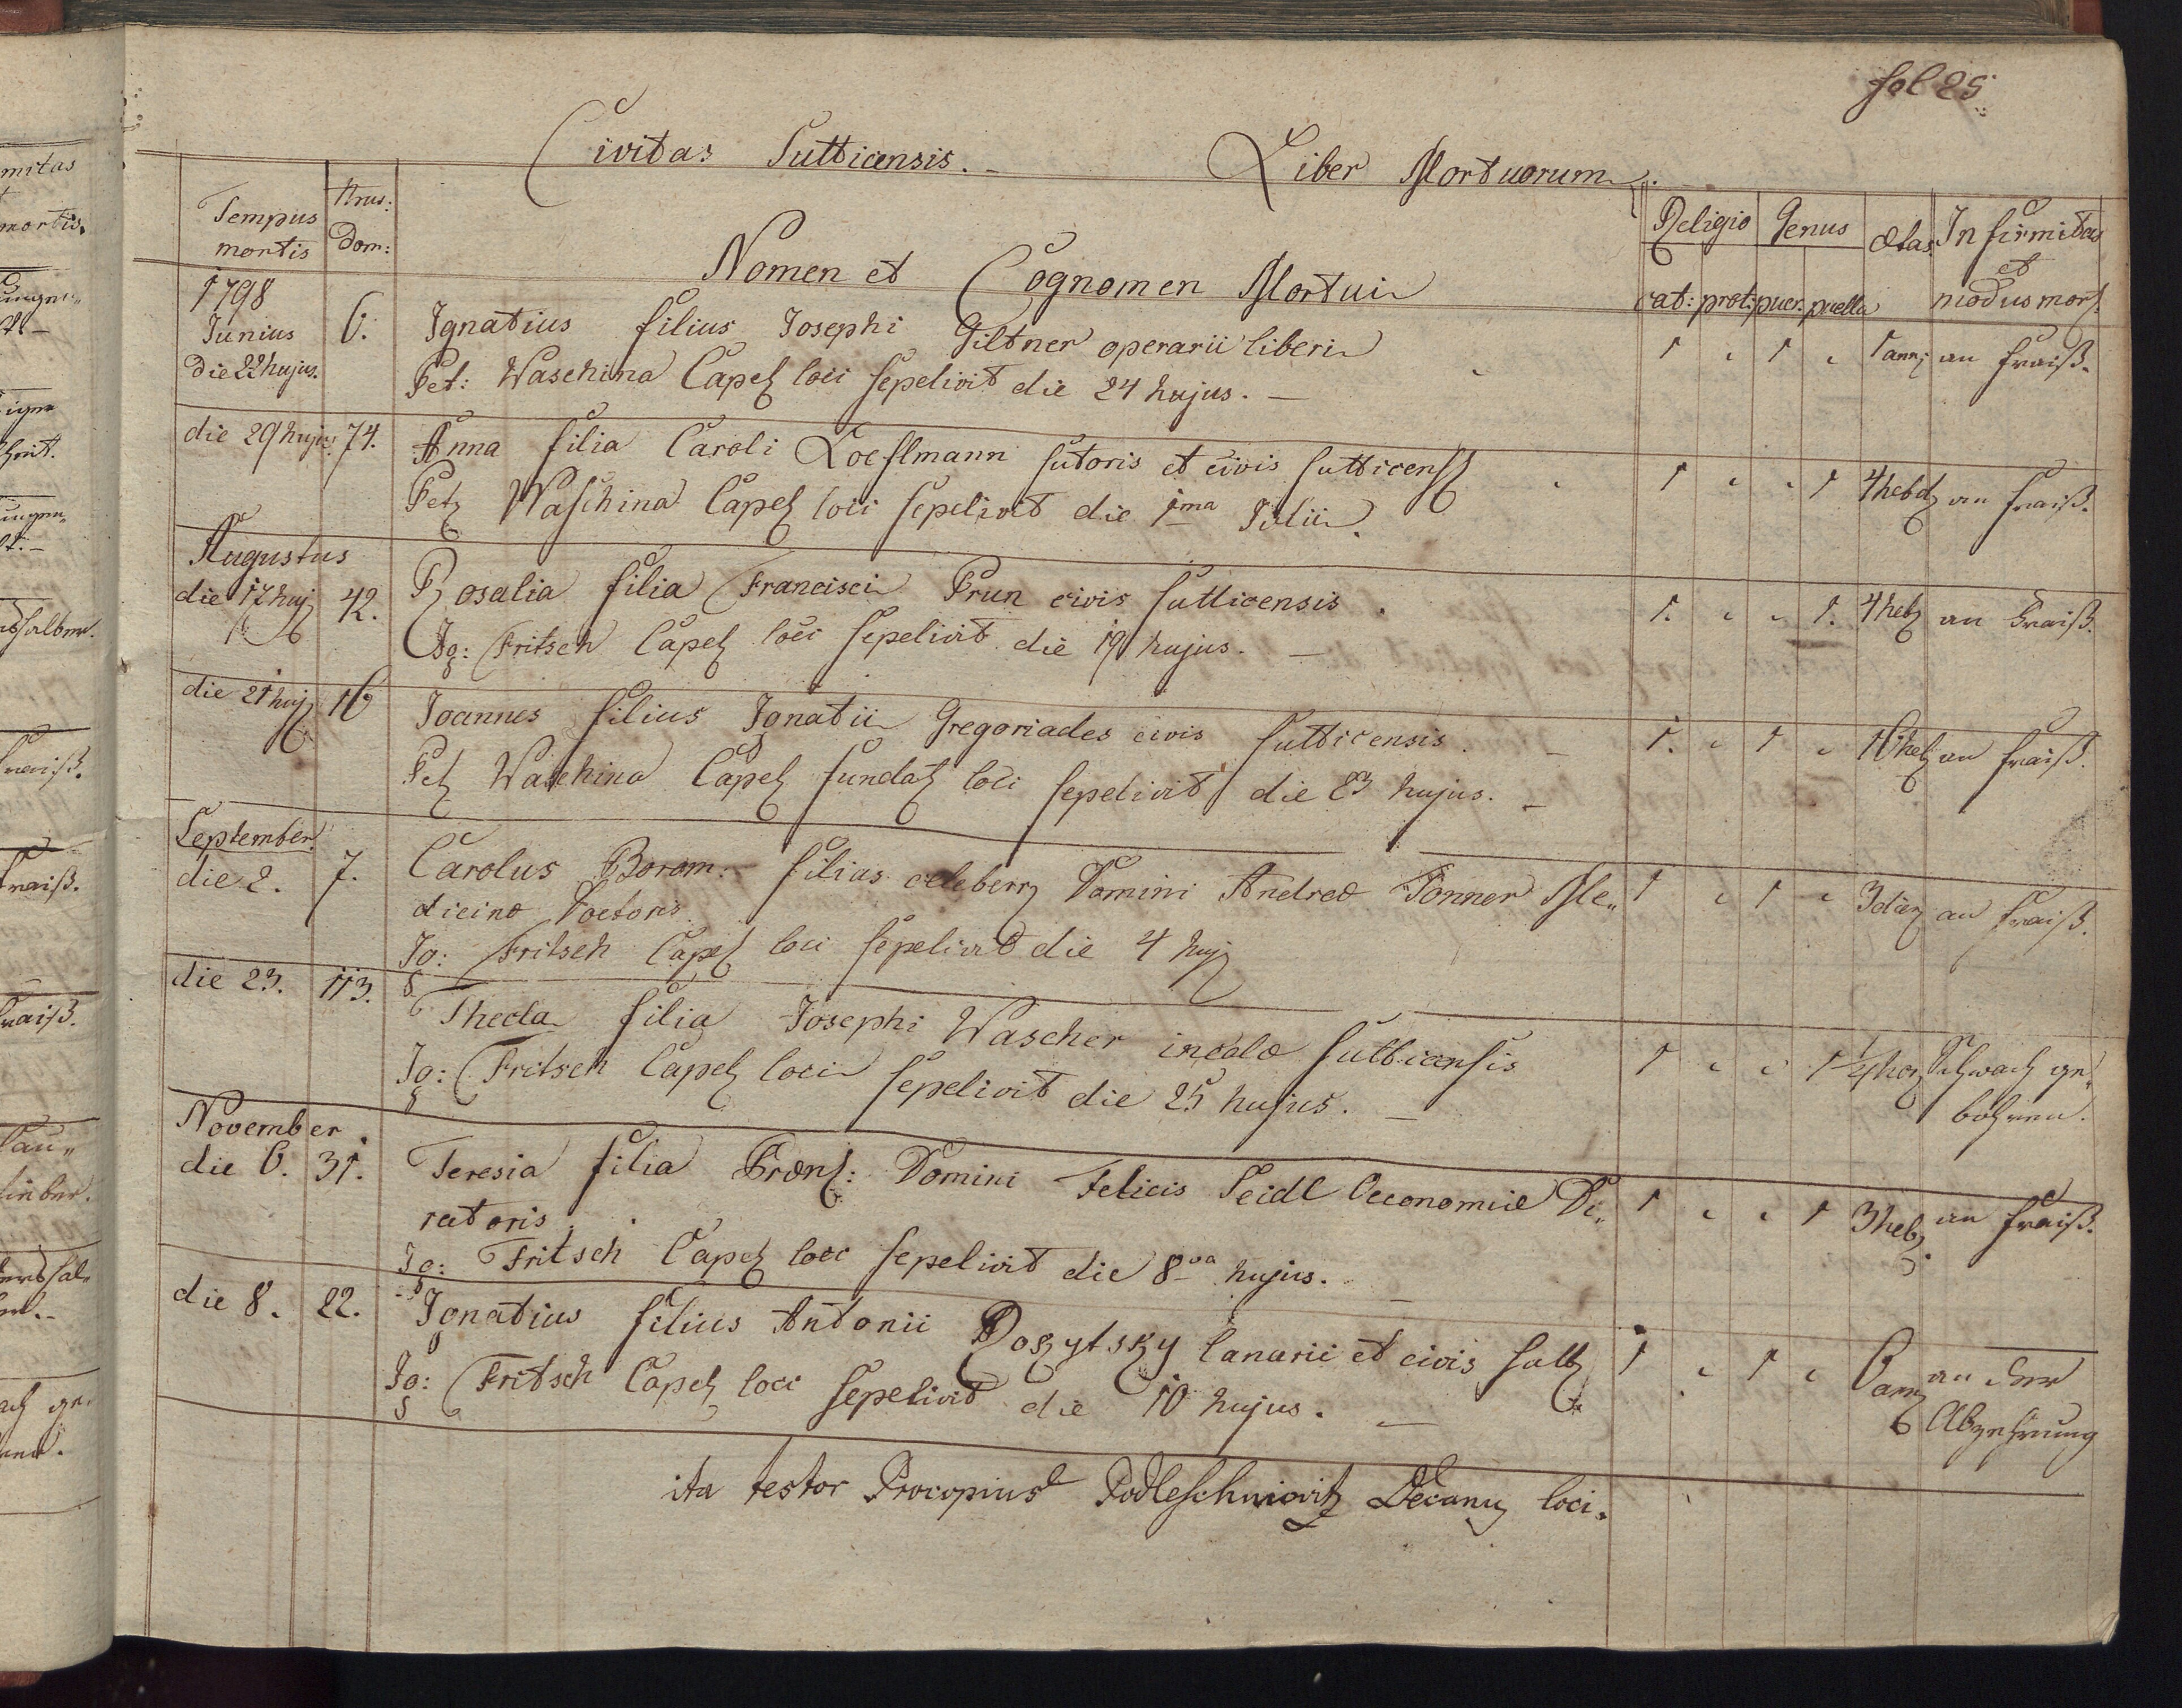 fol 25
Civitas Sutticensis. Liber Mortuorum.
Tempus mortis
Nrus: Dom:
Nomen et Cognomen Mortui
Religio Genus Ætas Infirmitas et modus mort:
cat: prot: puer. puella
1798
Junius
Die 22 hujus. 6. Ignatius filius Josephi Giltner operarii liberi 1 1 1 ann; an Fraiß.
Pet: Waschina Capel loci sepelivit die 24 hujus. –
die 29 hujus. 74. Anna filia Caroli Loeflmann sutoris et civis sutticens 1 1 4 hebd an Fraiß.
Pet Waschina Capel loci sepelivit die 1ma Julii.
Augustus
die 17 huj 42. Rosalia filia Francisci Prun civis sutticensis. 1. 1. 4 heb an Fraiß.
Ig: Fritsch Capel loci sepelivit die 19 hujus. –
die 21 huj 16 Joannes filius Ignatii Gregoriades civis sutticensis. 1. 1 16 heb an Fraiß.
Pet Waschina Capel fundat loci sepelivit die 23 hujus. –
September
die 2. 7. Carolus Borom: filius celeberr Domini Andreæ Tonner Me„ 1 1 3 dier an Fraiß.
dicinæ Doctoris
Ig: Fritsch Capel loci sepelivit die 4 huj
die 23. 113. Thecla filia Josephi Wascher incolæ sutticensis 1 1 1/4 hor Schwach ge„
bohren.
Ig: Fritsch Capel loci sepelivit die 25 hujus. –
November
die 6. 31. Teresia filia Præns: Domini Felicis Seidl Oeconomiæ Di„ 1 1 3 heb an Fraiß.
ratoris.
Ig: Fritsch Capel loci sepelivit die 8va hujus.
die 8. 22. Ignatius filius Antonii lanarii et civis sutt 1 1 6 ann an der
Abzehrung
Ig: Fritsch Capel loci sepelivit die 10 hujus. –
ita testor Procopius Podleschniovitz Decanus loci.